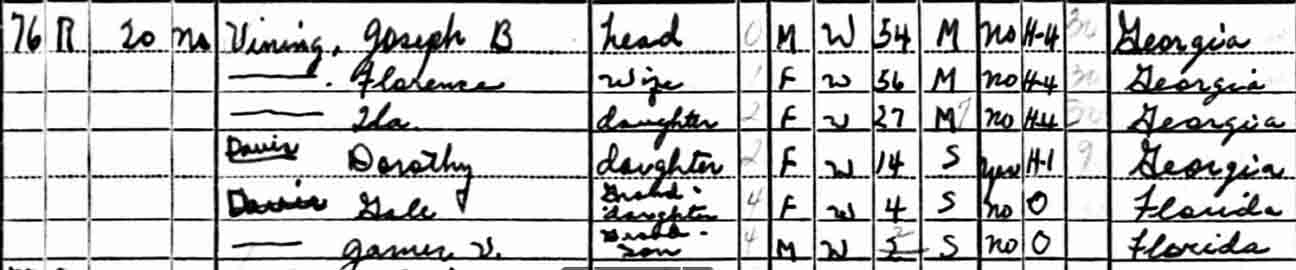 76 R 20 no Vining, Joseph B head 0 M W 54 M no H-4 30 Georgia
—. Florence wife 1 F W 56 M no H-4 30 Georgia
— Ila. daughter 2 F W 27 M 7 no H-4 30 Georgia
Davis Dorothy daughter 2 F W 14 S yes H-1 9 Georgia
Davis Gale Grand-daughter 4 F W 4 S no 0 Florida
— James V. Grand-son 4 M W 2 S no 0 Florida